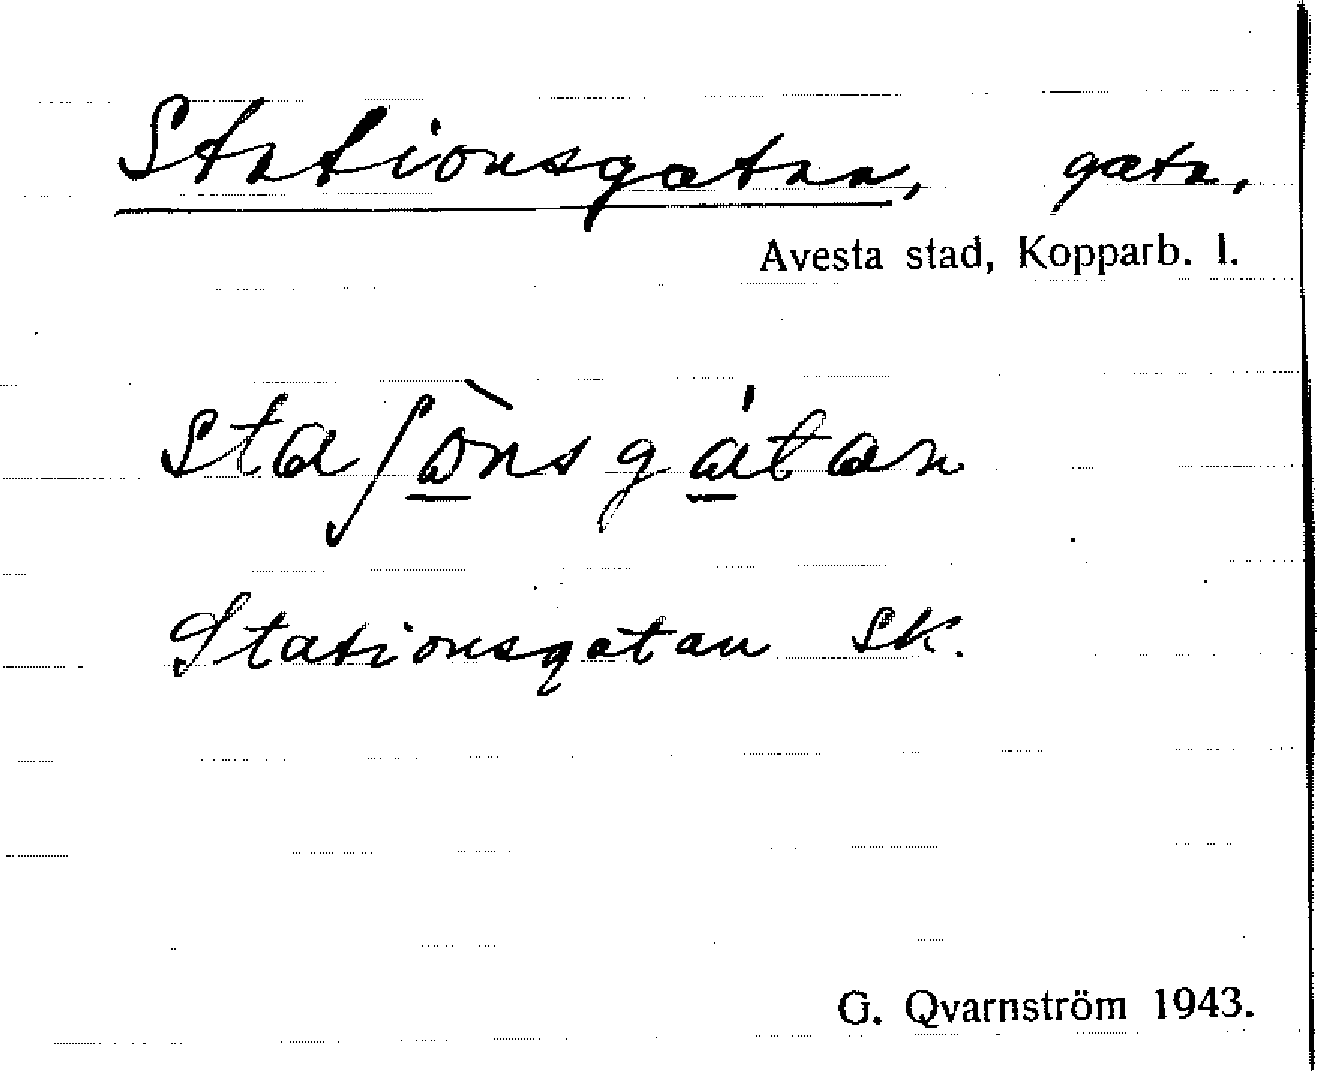 Stationsgatan, gata,
Avesta stad, Kopparb. l.
staʃò̱nsgá̱tan
Stationsgatan SK.
G. Qvarnström 1943.